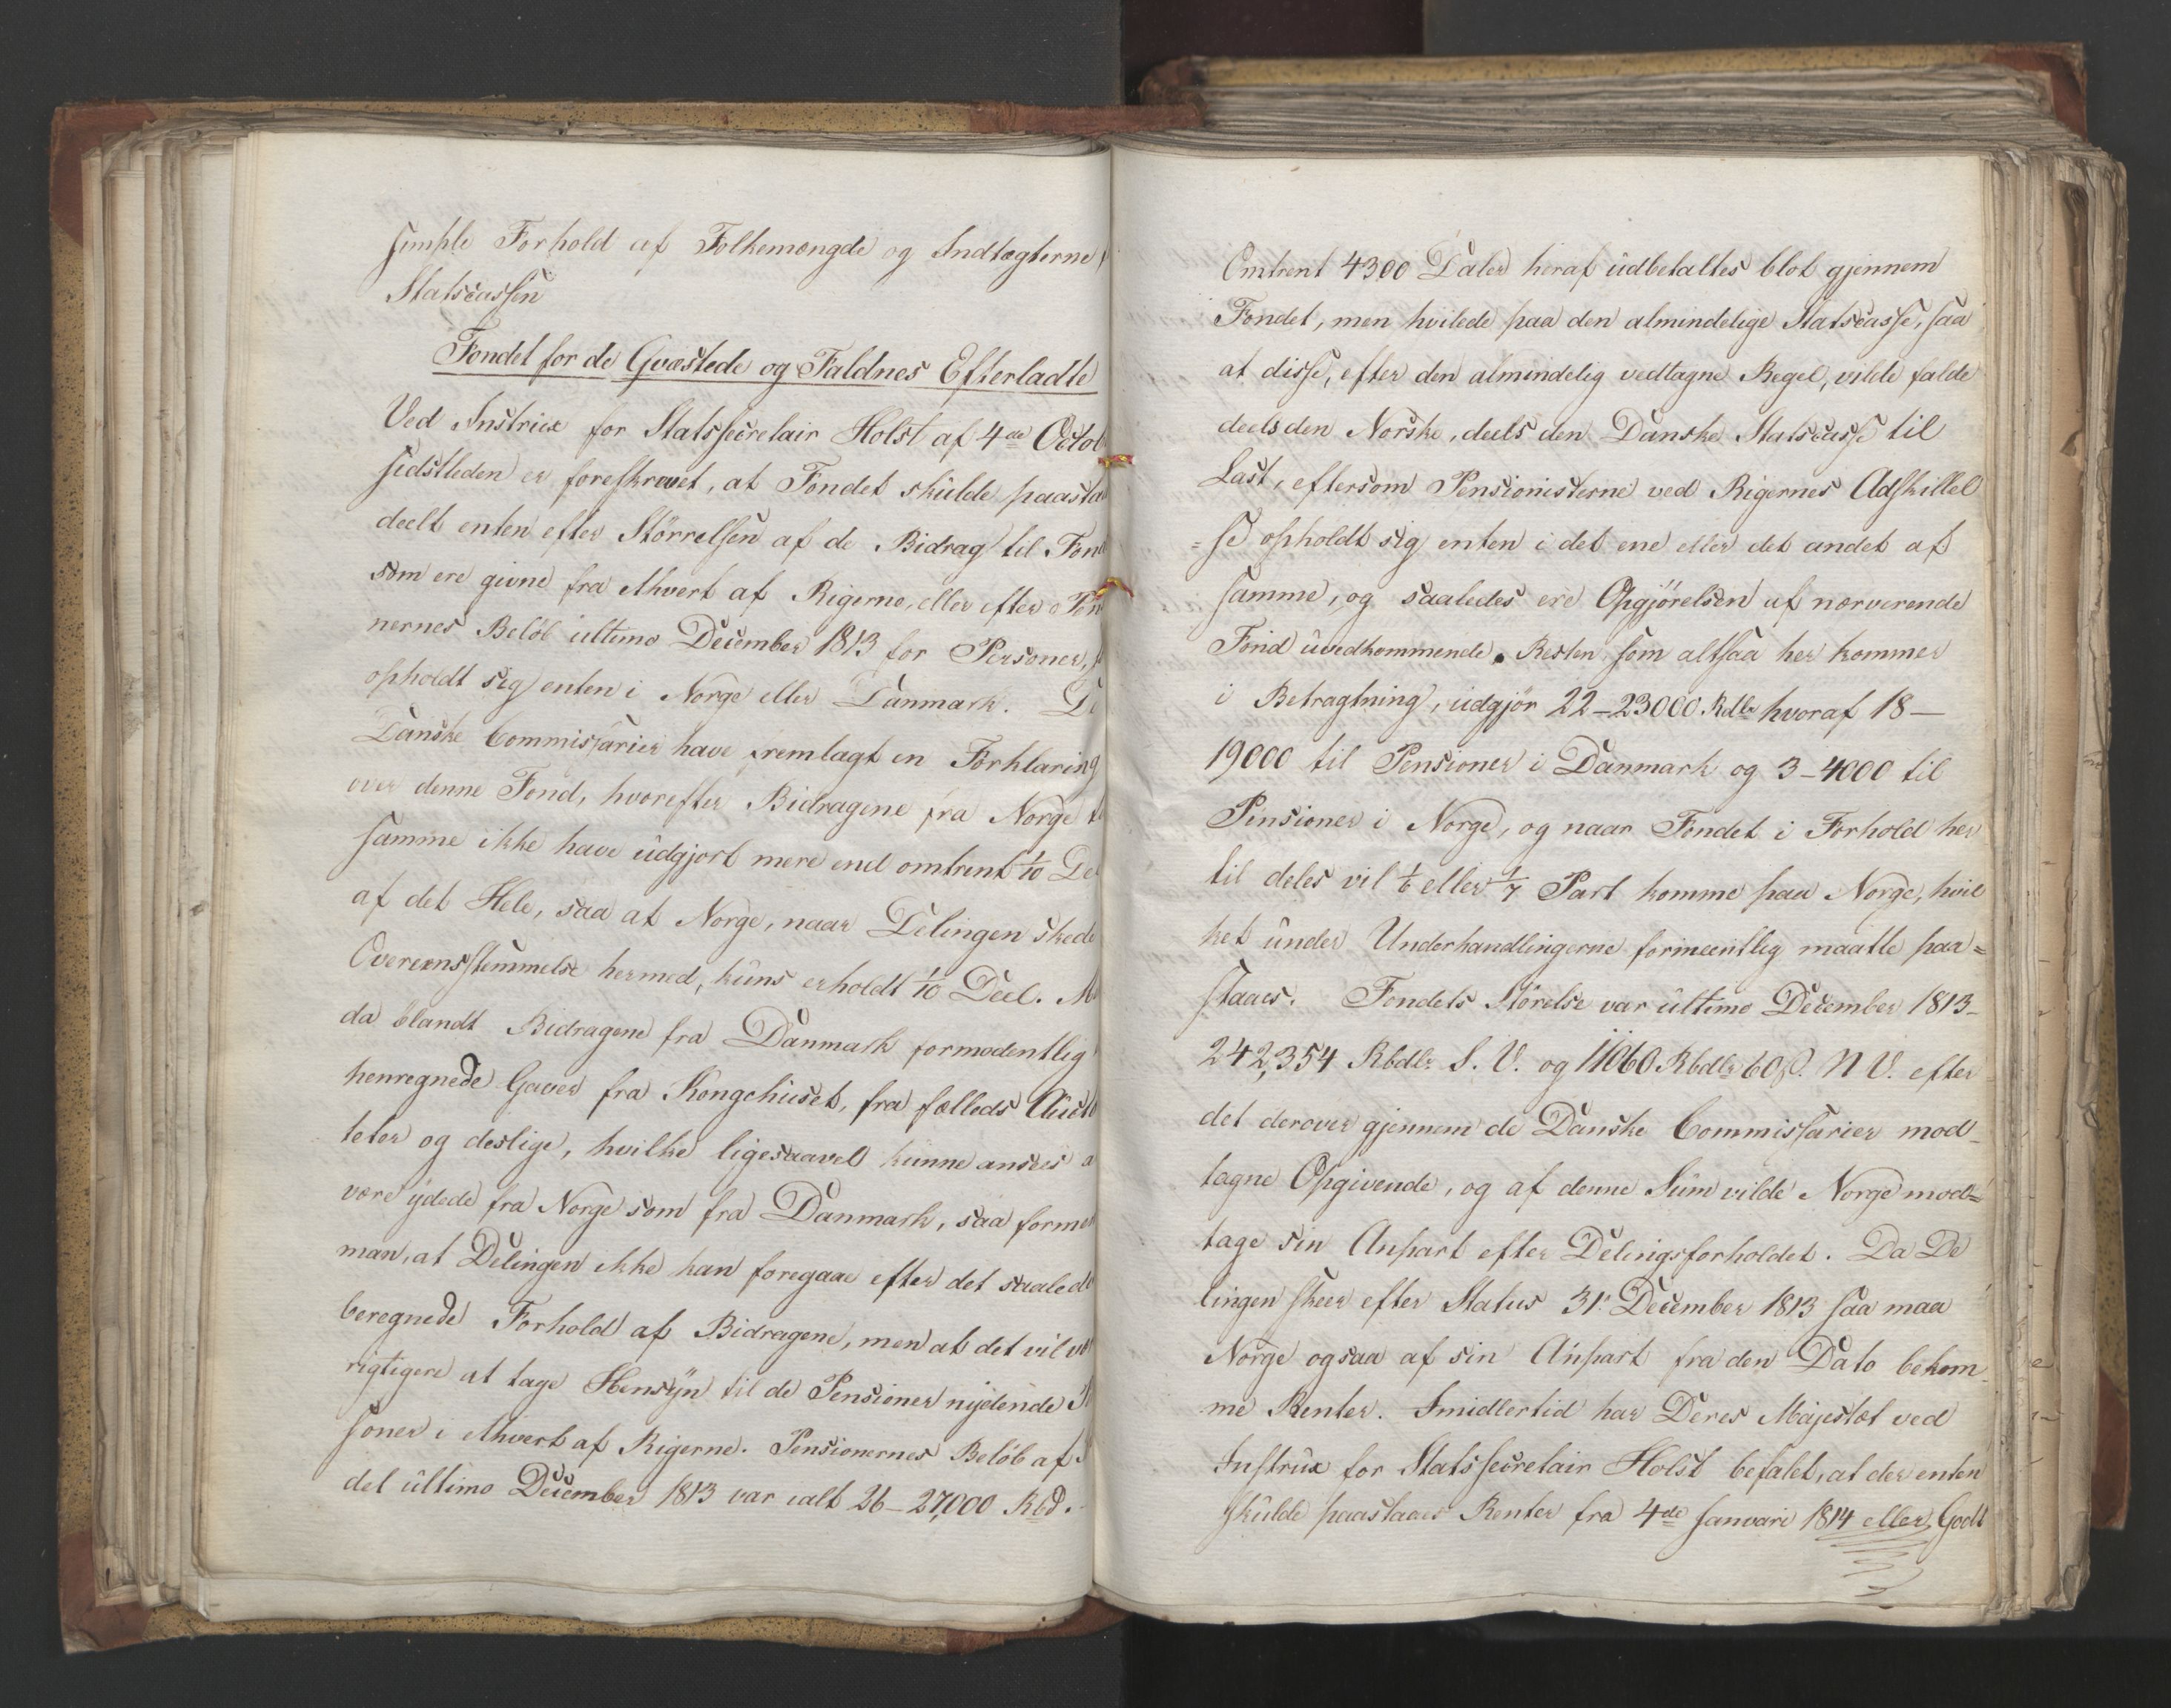 simple Forhold af Folkemængde og Indtægterne
Statscassen
Fondet for de Qvæstede og Faldnes Efterladte
Ved Instrux for Statssecretair Holst af 4de Octob
sidstleden er foreskrevet, at Fondet skulde paasta
deelt enten efter Störrelsen af de Bidrag til Fond
som ere givne fra Ethvert af Rigerne, eller efter Pen
nernes Belöb ultimo December 1813 for Personer,
opholdt sig enten i Norge eller Danmark. De
Danske Commissarier have fremlagt en Forklaring
over denne Fond, hvorefter Bidragene fra Norge t
samme ikke have udgjort mere end omtrent 1/10 De
af det Hele, saa at Norge, naar Delingen skede
Overeensstemmelse hermed, kuns erholdt 1/10 Deel. M
da blandt Bidragene fra Danmark formodentlig
henregnede Gaver fra Kongehuset, fra fælleds Auct
teter og deslige, hvilke ligesaavel kunne ansees a
være ydede fra Norge som fra Danmark, saa forme
man, at Delingen ikke kan foregaae efter det saalede
beregnede Forhold af Bidragene, men at det vil væ
rigtigere at tage Hensyn til de Pensioner nydende P
soner i Ethvert af Rigerne. Pensionernes Belöb af
det ultimo December 1813 var ialt 26-27,000 Rbd.
Omtrent 4300 Daler heraf udbetaltes blot gjennem
Fondet, men hvilede paa den almindelige Statscasse, saa
at disse, efter den almindelig vedtagne Regel, vilde falde
deels den Norske, deels den Danske Statscasse til
Last, eftersom Pensionisterne ved Rigernes Adskillel
=se opholdt sig enten i det ene eller det andet af
samme, og saaledes ere Opgjörelsen af nærværende
Fond uvedkommende. Resten som altsaa her kommer
i Betragtning, udgjör 22-23000 Rdlr hvoraf 18-
19000 til Pensioner i Danmark og 3-4000 til
Pensioner i Norge, og naar Fondet i Forhold her
til deles vil 1/6 eller 1/7 Part komme paa Norge, hvil
ket under Underhandlingerne formeentlig maatte paa=
staaes. Fondets Störelse var ultimo December 1813-
242,354 Rbdlr S. V. og 11060 Rbdlr 60 s. N V. efter
det derover gjennem de Danske Commissarier mod-
tagne Opgivende, og af denne Sum vilde Norge mod=
tage sin Anpart efter Delingsforholdet. Da De
lingen skeer efter Status 31. December 1813 saa maa
Norge ogsaa af sin Anpart fra den Dato bekom-
me Renter. Imidlertid har Deres Majestæt ved
Instrux for Statssecretair Holst befalet, at der enten
skulde paastaaes Renter fra 4de Januari 1814 eller Godt